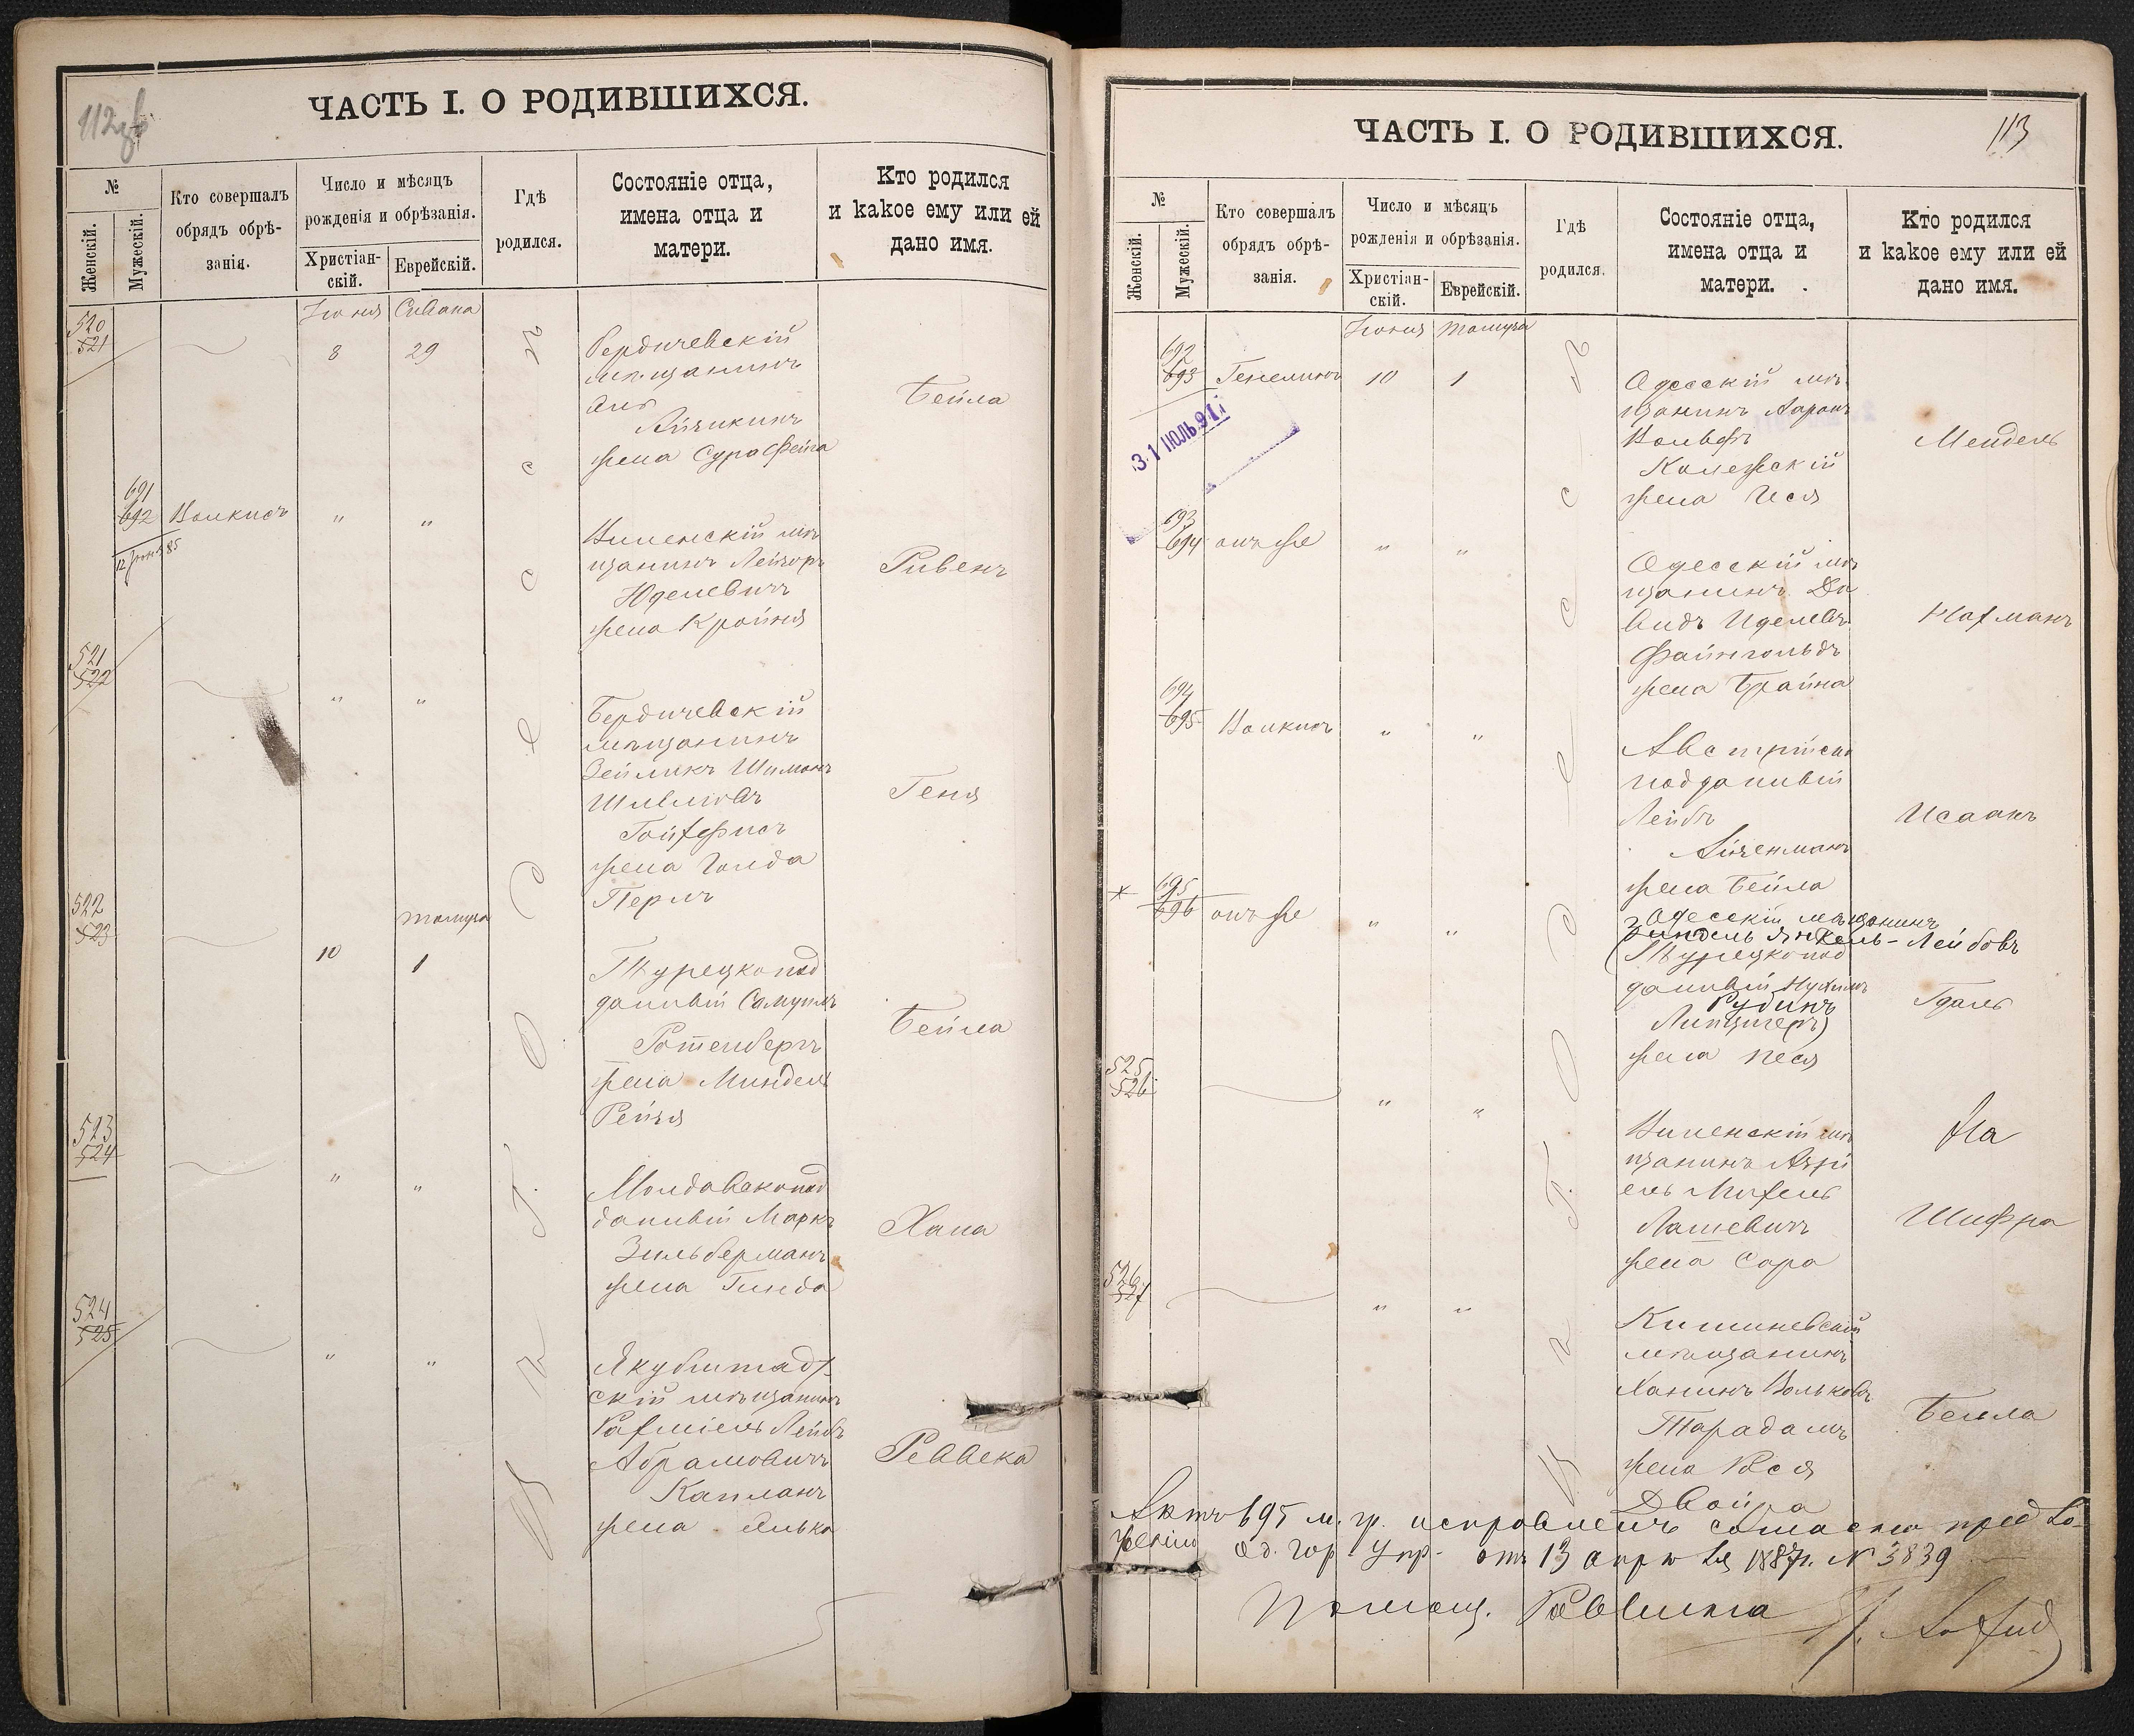 112 об
ЧАСТЬ I. О РОДИВШИХСЯ.
№
Женскій.
Мужескій.
Кто совершалъ
обрядъ обрѣ-
занія.
Число и мѣсяцъ
рожденія и обрѣзанія.
Христіан-
скій.
Еврейскій.
Гдѣ
родился.
Состояніе отца,
имена отца и
матери.
Кто родился
и какое ему или ей
дано имя.
Іюня Сивана
520
521
8 29
Бердичевскій
мѣщанинъ
Айзикинъ
жена Сура Фейга
Бейла
691
692 Волкисъ " "
12 85
Виленскій мѣ
щанинъ Лейзоръ
Юделевичъ
жена Крайня
Рувенъ
521
522
" "
Бердичевскій
мѣщанинъ
Зейликъ Шимонъ
Шмліовъ
жена Голда
Перль
Геня
522
523
Тамуза
10 1
Турецкопод
данный Самуилъ
Ротенбергъ
жена Миндель
Рейзя
Бейла
523
524
" "
Молдавскопод
данный Маркъ
Зильберманъ
жена Гинда
Хана
524
525
" "
Якубштадт
скій мѣщанинъ
Рахміель Лейбъ
Абрамовичъ
Капланъ
жена Элька
Реввека
ЧАСТЬ I. О РОДИВШИХСЯ.
113
№
Женскій.
Мужескій.
Кто совершалъ
обрядъ обрѣ-
занія.
Число и мѣсяцъ
рожденія и обрѣзанія.
Христіан-
скій.
Еврейскій.
Гдѣ
родился.
Состояніе отца,
имена отца и
матери.
Кто родился
и какое ему или ей
дано имя.
Іюня Тамуза
692
693 10 1
31 ІЮЛЬ 91
Одесскій мѣ
щанинъ Аронъ
Вольфъ
жена Ися
Мендель
693
694 онъ же " "
Одесскій мѣ
щанинъ Да
видъ Иделевъ
Файнгольдъ
жена Брайна
Нахманъ
694
695 Волкисъ " "
Австрійско
подданный
Лейбъ
Айзенманъ
жена Бейла
Исаакъ
695
696 онъ же " "
Одесскій мѣщанинъ
Зиндель Янкель-Лейбовъ
(Турецкопод
данный Нухимъ
Рудинъ
Липцигеръ)
жена Песя
Гдаль
525
526
" "
Виленскій мѣ
щанинъ Азрі
ель Михель
Лашевичъ
жена Сара
Ха
Шифра
526
527
" "
Кишиневскій
мѣщанинъ
Хаимъ Вольковъ
Тарадашъ
жена Рося
Двойра
Бейла
Актъ 695 м. п. исправленъ согласно предло-
женію Од. Гор. Упр. отъ 13 апрѣля 1887 г. № 3839
Помощ. Раввина